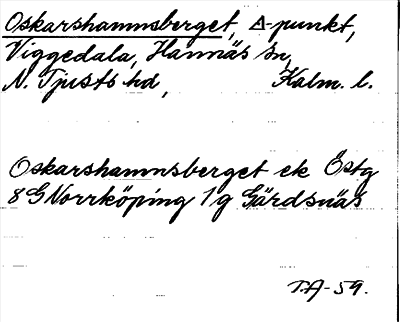 Oskarshamnsberget, Δ-punkt,
Viggedala, Hannäs sn,
N. Tjusts hd, Kalm. l.
Oskarshamnsberget ek Östg
8G Norrköping 1g Gärdsnäs
T.A-59.